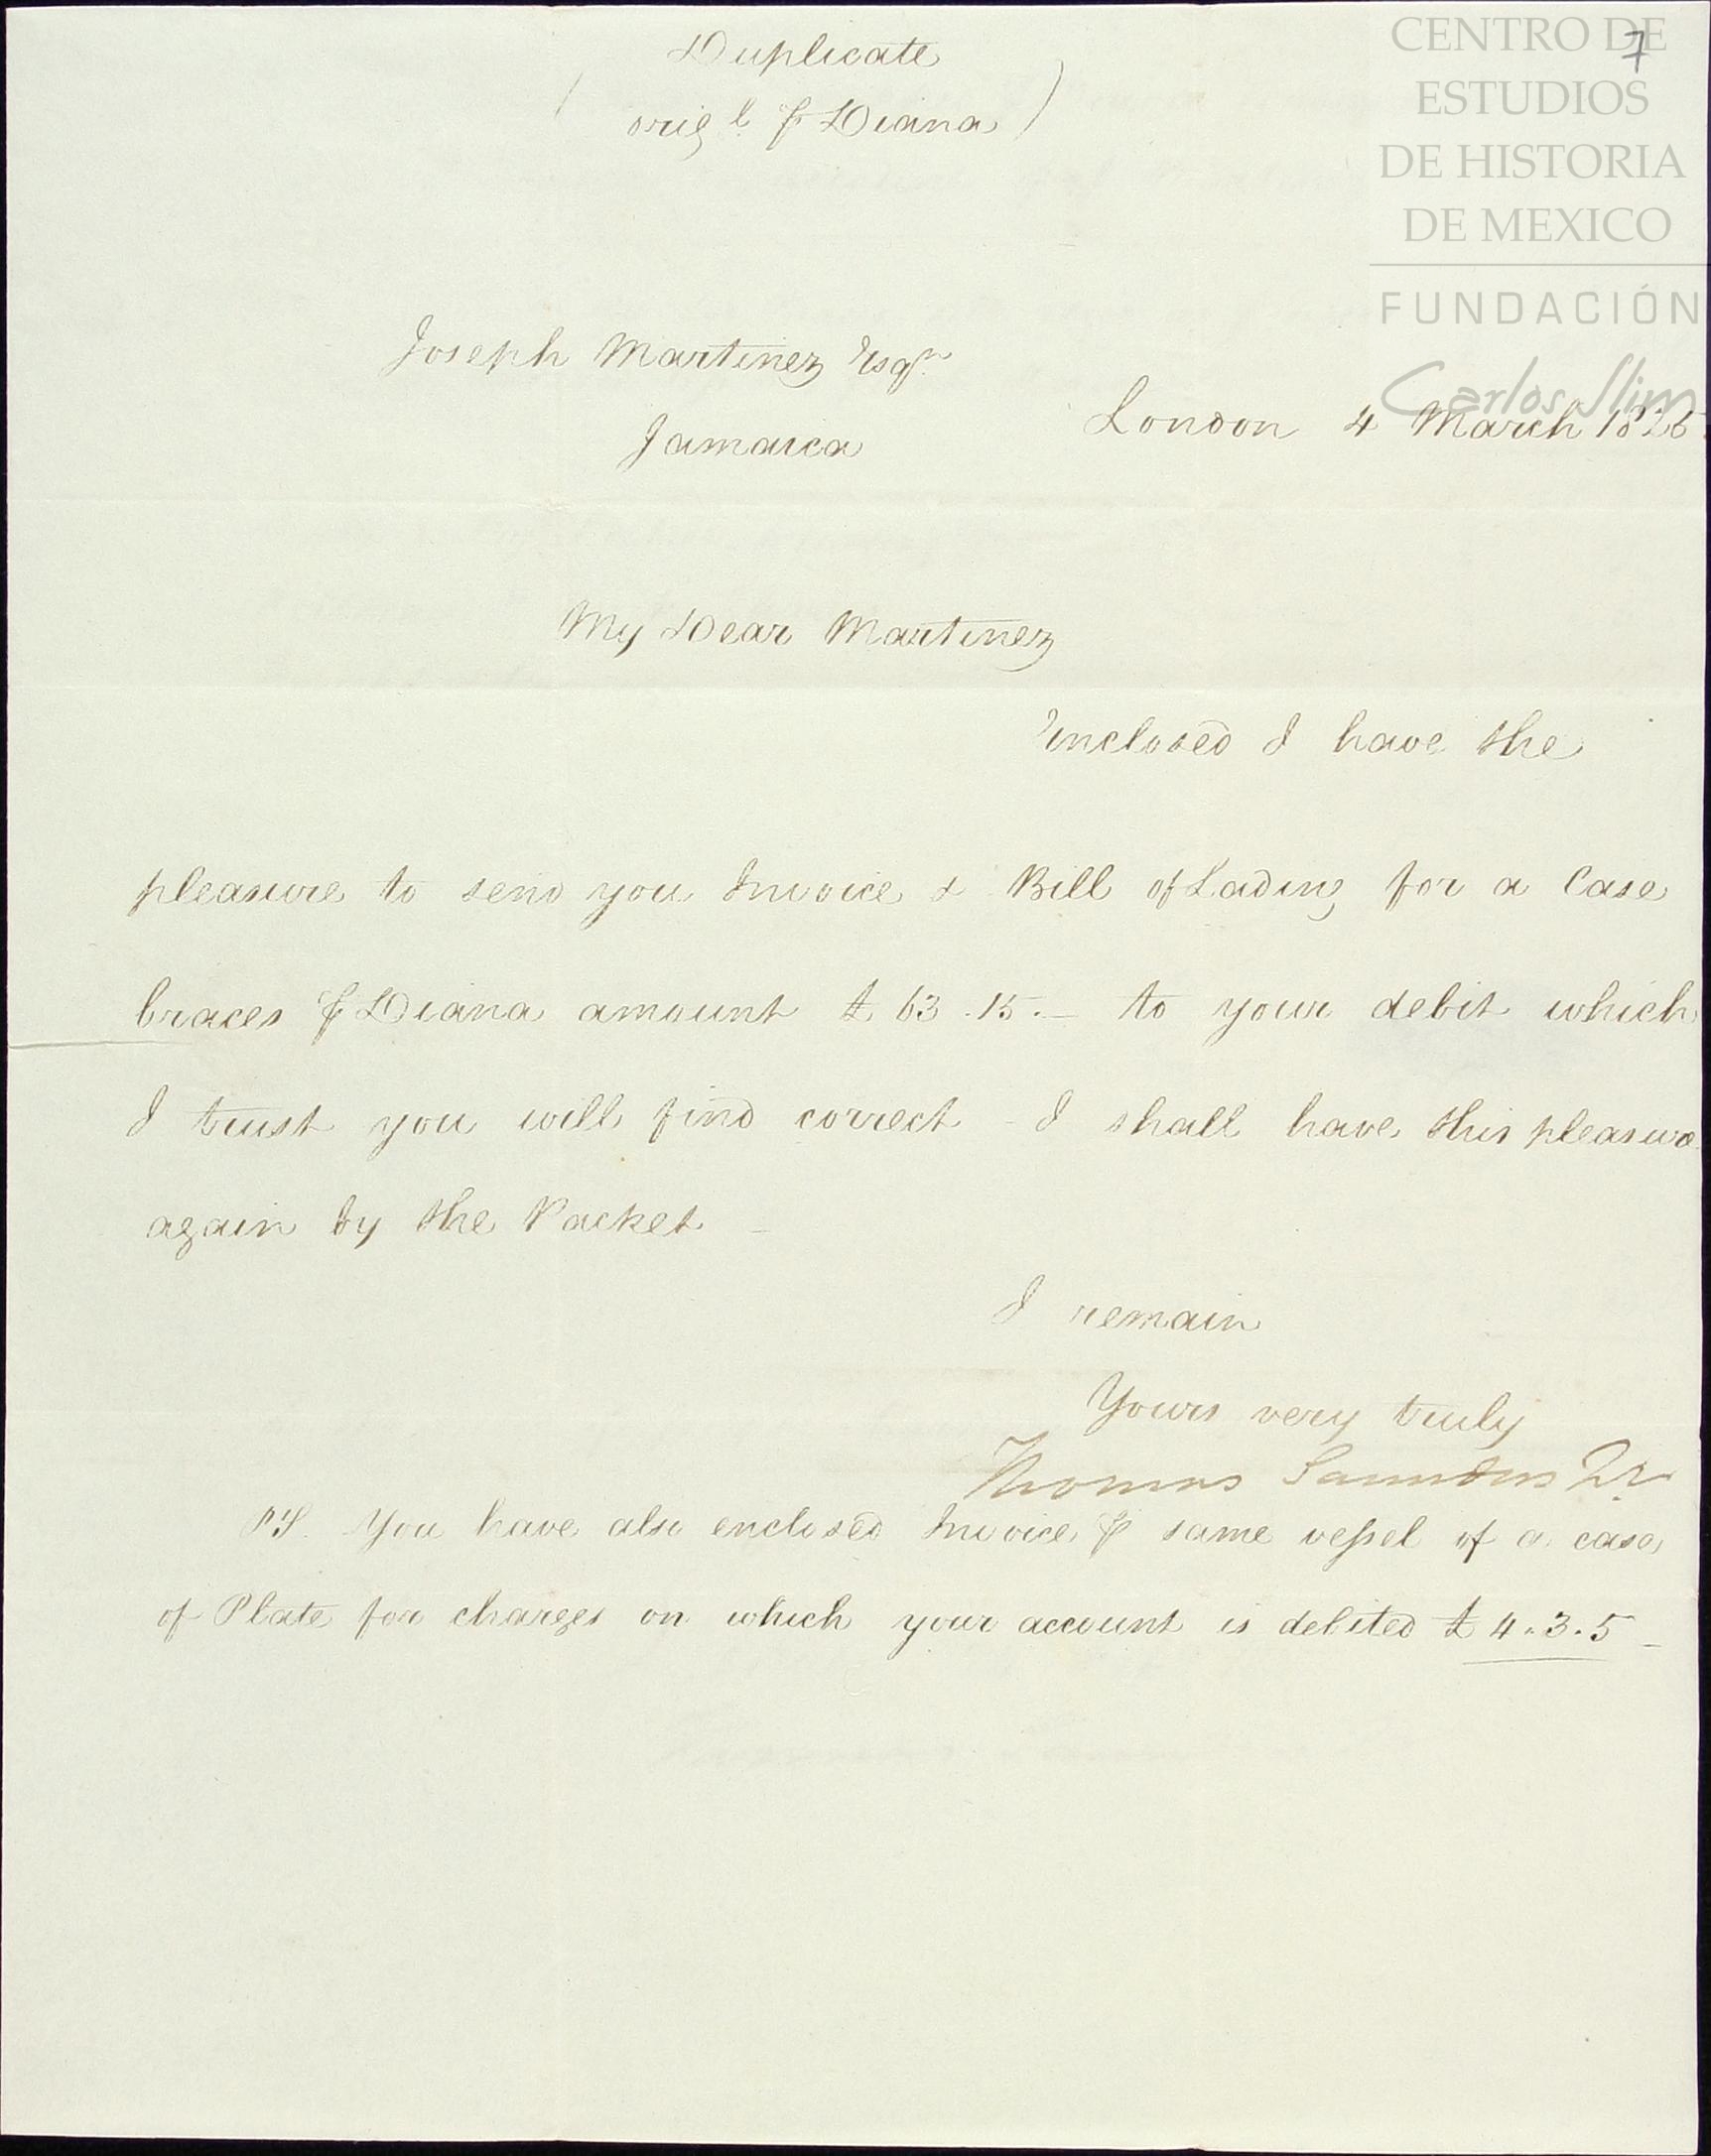 Duplicate
(orig.l ⅌ Diana)
7
CENTRO DE
ESTUDIOS
DE HISTORIA
DE MEXICO
FUNDACIÓN
Carlos Slim
Joseph Martinez Esqr.
Jamaica
London 4 March 1826
My Dear Martinez
Enclosed I have the
pleasure to send you Invoice & Bill of Lading for a Case
braces ⅌ Diana amount £ 63.15.— to your debit which
I trust you will find correct - I shall have this pleasure
again by the Packet —
I remain
Yours very truly
Thomas Saunders Jr
PS. You have also enclosed Invoice ⅌ same vessel of a case
of Plate for charges on which your account is debited £ 4.3.5 —